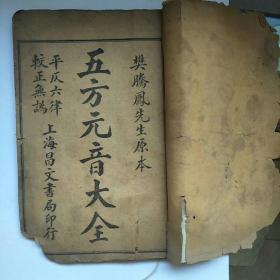 樊騰鳳先生原本
五方元音大全
平仄六律
較正無譌
上海昌文書局印行